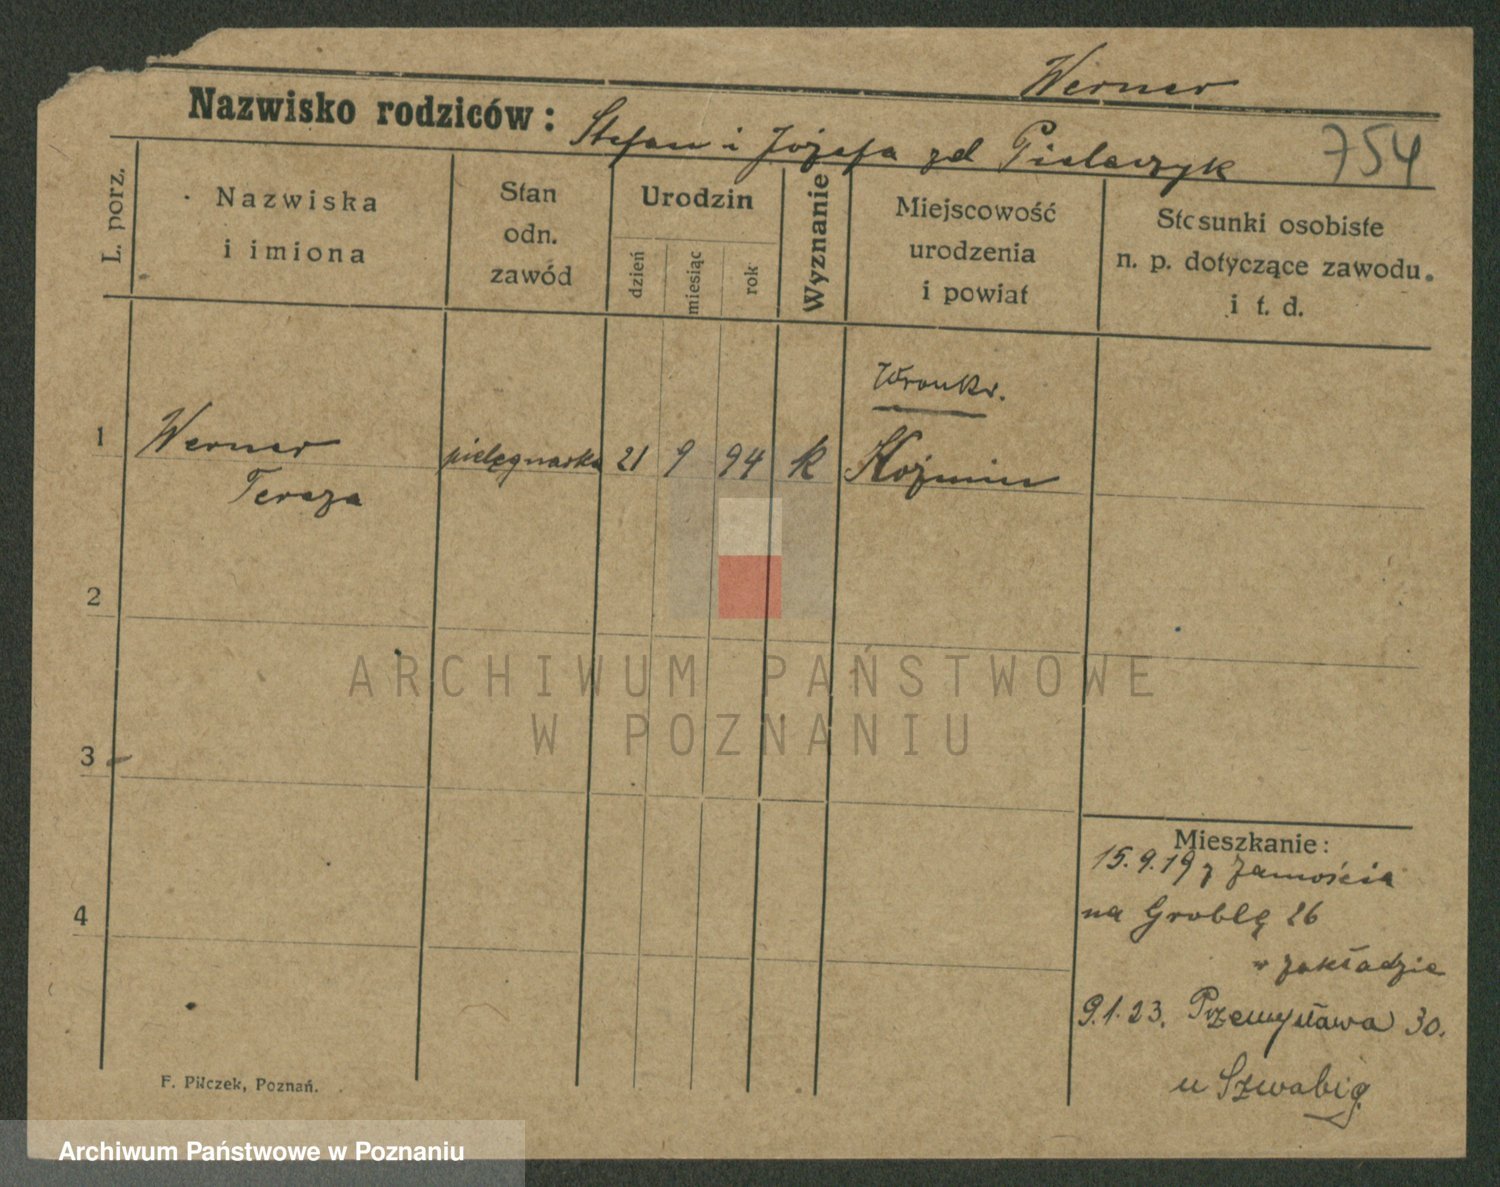 Werner
Nazwisko rodziców: Stefan i Józefa zd
754
L. porz.
Nazwiska
i imiona
Stan
odn.
zawód
Urodzin
dzień
miesiąc
rok
Wyznanie
Miejscowość
urodzenia
i powiat
Stosunki osobiste
n. p. dotyczące zawodu.
i t. d.
Wronki.
1 Werner pielęgnarka 21 9 94 k Koźmin
Teresa
2
3
4
ARCHIWUM PAŃSTWOWE
W POZNANIU
Mieszkanie:
15.9.19 z Zamościa
na Groblę 26
w zakładzie
9.1.23. Przemysława 30.
u
F. Pilczek, Poznań.
Archiwum Państwowe w Poznaniu